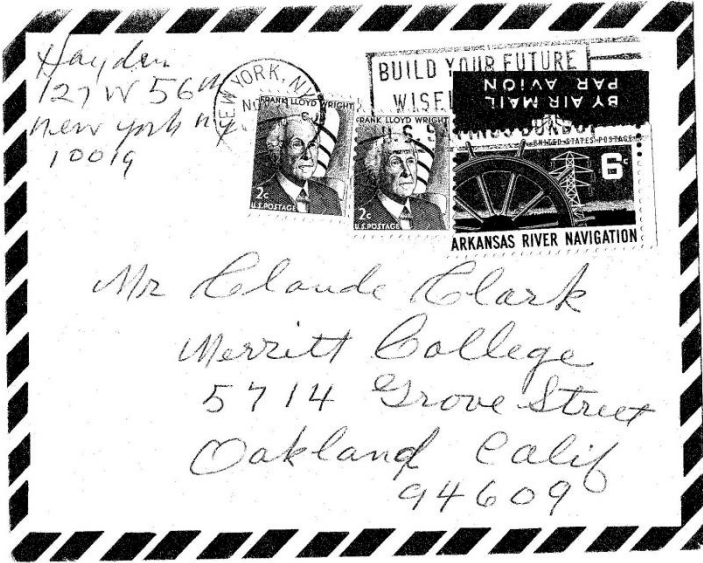 Hayden
127 W 56th
New York NY
10019
NEW YORK, N.Y.
BUILD YOUR FUTURE
U.S. SAVINGS BONDS
BY AIR MAIL
PAR AVION
FRANK LLOYD WRIGHT
2c
U.S. POSTAGE
FRANK LLOYD WRIGHT
2c
U.S. POSTAGE
UNITED STATES POSTAGE
6c
ARKANSAS RIVER NAVIGATION
Mr Claude Clark
Merritt College
5714 Grove Street
Oakland Calif
94609